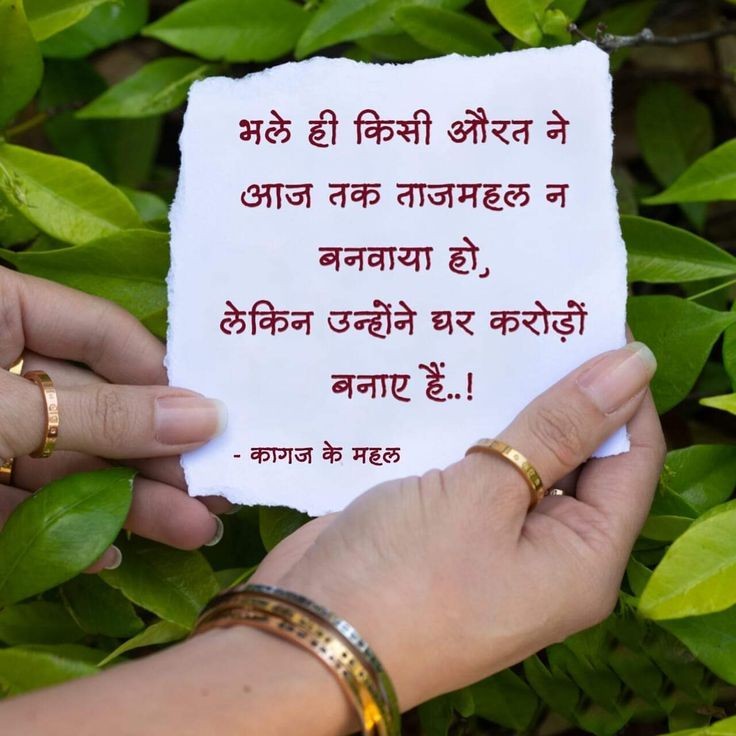 भले ही किसी औरत ने
आज तक ताजमहल न
बनवाया हो,
लेकिन उन्होंने घर करोड़ों
बनाए हैं..!
- कागज के महल